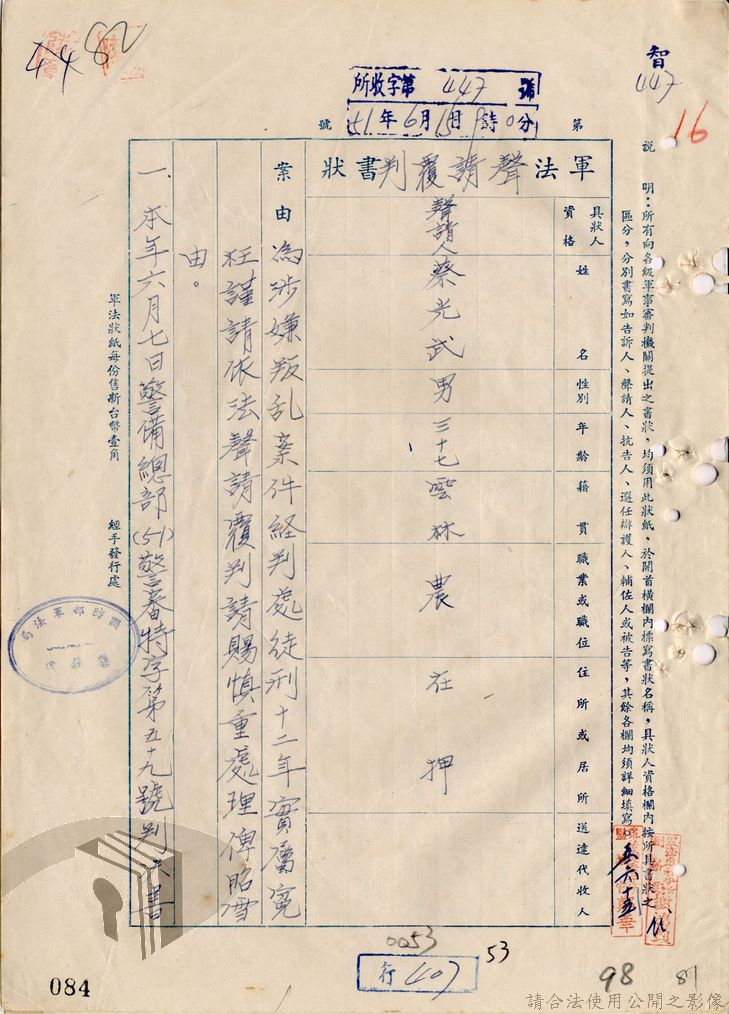 4482
智
447
16
所收字第 447 號
51年6月15日9時0分
第
號
說明：所有向各級軍事審判機關提出之書狀，均須用此狀紙，於開首橫欄內標寫書狀名稱，具狀人資格欄內按所具書狀之
區分，分別書寫如告訴人、聲請人、抗告人、選任辯護人、輔佐人或被告等，其餘各欄均須詳細填寫。
軍法聲請覆判書狀
具狀人資格
姓名
性別
年齡
籍貫
職業或職位
住所或居所
送達代收人
聲請人
蔡光武
男
三十七
雲林
農
在押
案由
為涉嫌叛乱案件経判處徒刑十二年實屬冤
枉謹請依法聲請覆判請賜慎重處理俾昭雪
由。
一、本年六月七日警備總部(51)警審特字第五十九號判決書
軍法狀紙每份售新台幣壹角
經手發行處
國防部軍法局
五六十五
0053
53
行 407
98
81
084
請合法使用公開之影像